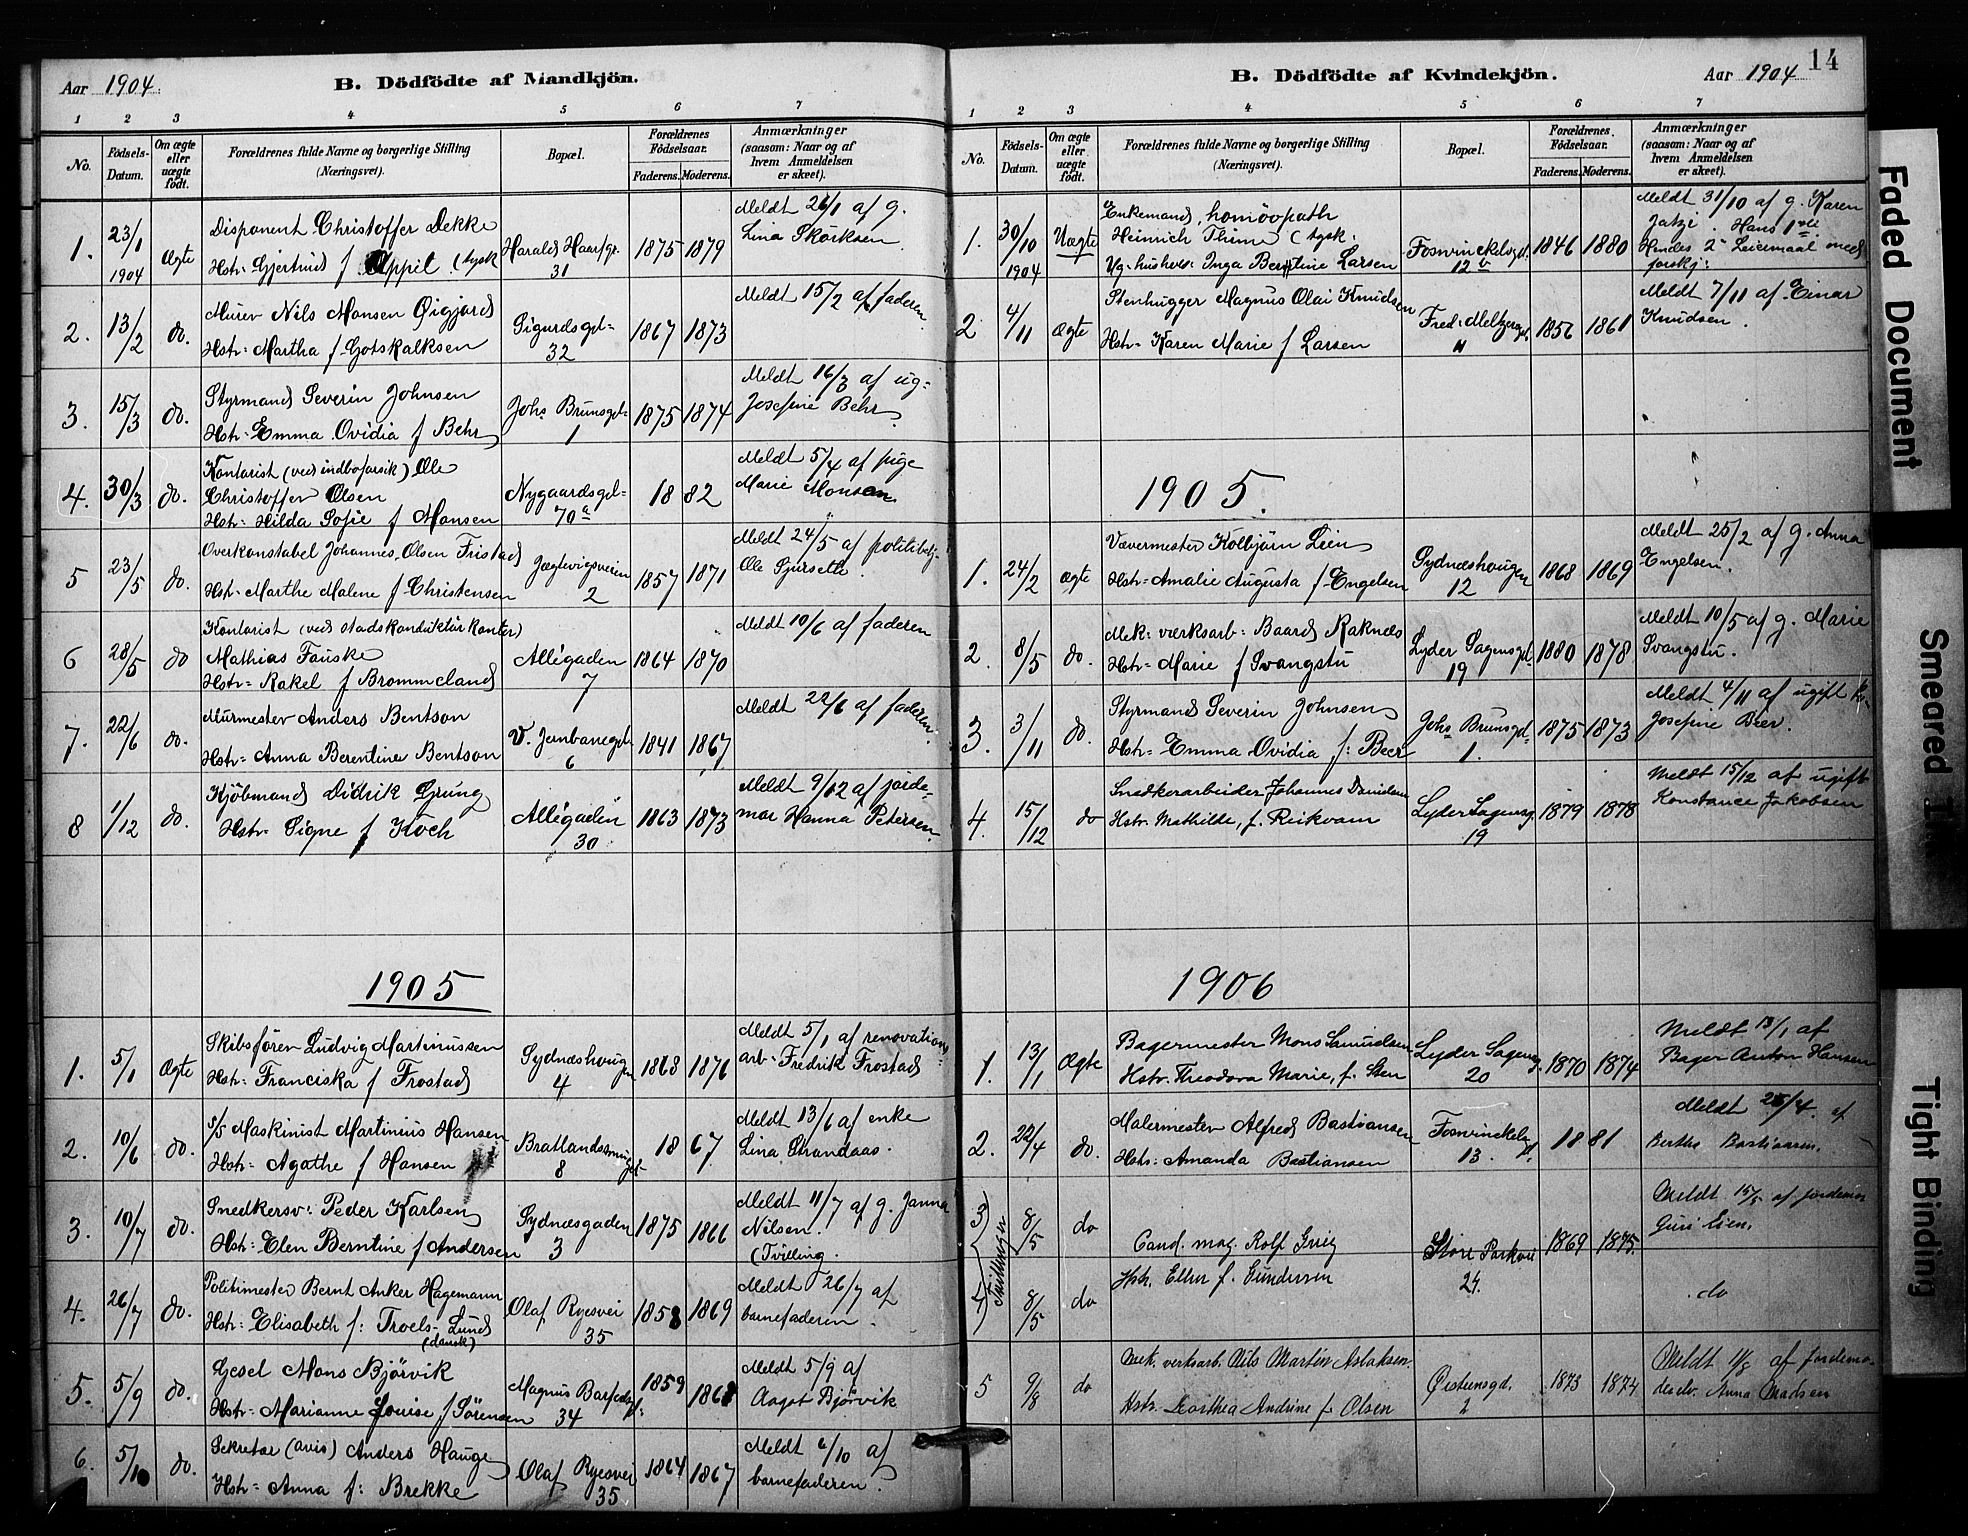 Aar 1904.
B. Dödfödte af Mandkjön.
1 2 3 4 5 6 7
No.
Födsels-Datum.
Om ægte eller uægte födt.
Forældrenes fulde Navne og borgerlige Stilling
(Næringsvei).
Bopæl.
Forældrenes Födselsaar.
Faderens. Moderens.
Anmærkninger
(saasom: Naar og af
hvem Anmeldelsen
er skeet).
1. 23/1 1904 Ægte
Disponent Christoffer Dekke
Hstr. Gjertrud f. Appil. (tysk
Harald Haarfgr.
31
1875 1879
Meldt 26/1 af g.
Lina Skörksen.
2. 13/2 do.
Murer Nils Monsen Øigjord
Hstr. Martha f. Gotskalksen
Sigurdsgd.
32
1867 1873
Meldt 15/2 af faderen.
3. 15/3 do.
Styrmand Severin Johnsen
Hstr. Emma Ovidia f Behr
Johs Brunsgd.
1
1875 1874
Meldt 16/3 af ug.
Josefine Behr
4. 30/3 do.
Kontorist (ved indboforsik) Ole
Christoffer Olsen
Hstr. Hilda Sofie f Monsen
Nygaardsgd.
70a
1882
Meldt 5/4 af pige
Marie Monsen
5 23/5 do.
Overkonstabel Johannes Olsen Fristad
Hstr. Marthe Malene f. Christensen
Jægtevigsveien
2
1857 1871
Meldt 24/5 af politibetj.
Ole Gjursette.
6 28/5 do
Kontorist (ved stadskonduktör kontor)
Mathias Fauske
Hstr. Rakel f Brommeland
Allégaden
7
1864 1870
Meldt 10/6 af faderen
7. 22/6 do.
Murmester Anders Bentson
Hstr. Anna Berentine Bentson
V. Jernbanegd.
6
1841 1867
Meldt 22/6 af faderen.
8 1/12 do.
Kjöbmand Didrik Grung
Hstr. Signe f Koch
Allégaden
30
1863 1873
Meldt 9/12 af jorde-
mor Hanna Petersen.
1905
1. 5/1 Ægte
Skibsförer Ludvig Martinussen
Hstr. Franciska f Frostad
Sydnæshougen
4
1868 1876
Meldt 5/1 af renovations
arb. Fredrik Frostad
2. 10/6 do.
s/s Maskinist Martinius Hansen
Hstr. Agathe f Hansen
Bratlandssmuget
8
1867
Meldt 13/6 af enke
Lina Strandaas.
3. 10/7 do.
Snedkersv. Peder Karlsen
Hstr. Elen Berntine f Andersen
Sydnæsgaden
3
1875 1866
Meldt 11/7 af g. Janna
Nilsen.
(Tvilling.
4. 26/7 do.
Politimester Bernt Anker Hagemann
Hstr. Elisabeth f. Troels-Lund
(dansk)
Olaf Ryesvei
35
1858 1869
Meldt 26/7 af
barnefaderen.
5. 5/9 do.
Gesel Mons Bjørvik
Hstr. Marianne Louise f Sörensen
Magnus Barfodsgd.
34
1859 1868
Meldt 5/9 af
Aagot Bjørvik
6. 5/10 do.
Sekretær (avis) Anders Hauge
Hstr. Anna f. Brekke
Olaf Ryesvei
35
1864 1867
Meldt 6/10 af
barnefaderen.
14
B. Dödfödte af Kvindekjön.
Aar 1904
1 2 3 4 5 6 7
No.
Födsels-Datum.
Om ægte eller uægte födt.
Forældrenes fulde Navne og borgerlige Stilling
(Næringsvei).
Bopæl.
Forældrenes Födselsaar.
Faderens. Moderens.
Anmærkninger
(saasom: Naar og af
hvem Anmeldelsen
er skeet).
1. 30/10 1904 Uægte
Enkemand, homöopath
Heinrich Thime (tysk.
Ug. hushold. Inga Berntine Larsen
Foswinckelsgd.
12b
1846 1880
Meldt 31/10 af g. Karen
Hans 1ste
Hendes 2det Leiermaal med
forskj.
2 4/11 Ægte
Stenhugger Magnus Olai Knudsen
Hstr. Karen Marie f Larsen
Fred. Meltzersgd.
11
1856 1861
Meldt 7/11 af Einar
Knudsen.
1905.
1. 24/2 Ægte
Vævermester Kolbjörn Lien
Hstr. Amalie Augusta f. Engelsen
Sydnæshougen
12
1868 1869
Meldt 25/2 af g. Anna
Engelsen.
2. 8/5 do.
Mek. værksarb. Baard Raknes
Hstr. Marie f Svangstu
Lyder Sagensgd.
19
1880 1878
Meldt 10/5 af g. Marie
Svangstu.
3. 3/11 do.
Styrmand Severin Johnsen
Hstr. Emma Ovidia f. Beer
Johs Brunsgd.
1.
1875 1873
Meldt 4/11 af ugift kv.
Josefine Beer.
4. 15/12 do
Snedkerarbeider Johannes Danielsen
Hstr. Mathilde, f. Reikvam
Lyder Sagensg.
19
1879 1878
Meldt 15/12 af ugift
Konstance Jakobsen
1906
1. 13/1 Ægte
Bagermester Mons Samuelsen
Hstr. Theodora Marie, f. Sten
Lyder Sagensg.
20
1870 1874
Meldt 13/1 af
Bager Anton Hansen
2. 22/4 do.
Malermester Alfred Bastiansen
Hstr. Amanda Bastiansen
Foswinckels gd.
13.
1881
Meldt 25/4. af
Bertha Bastiansen.
3) 8/5 do
Tvillinger
Cand. mag. Rolf Grieg
Hstr. Ellen f. Gundersen
Store Parkvei
24.
1869 1875.
Meldt 15/5 af jordemor
Guri Lien.
4) 8/5 do
do
5 9/8 do
Mek. verksarb. Nils Martin Aslaksen.
Hstr. Dorthea Andrine f. Olsen
Øisteinsgd.
2
1873 1874
Meldt 11/8 af Jordemo-
derelv. Anna Madsen
Faded Document
Smeared
Tight Binding